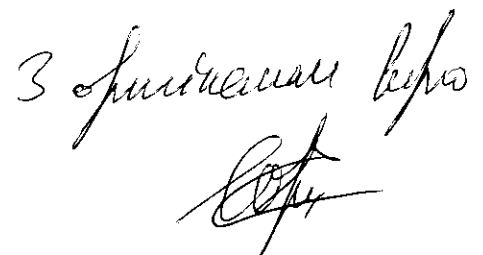 З оригіналом вірно